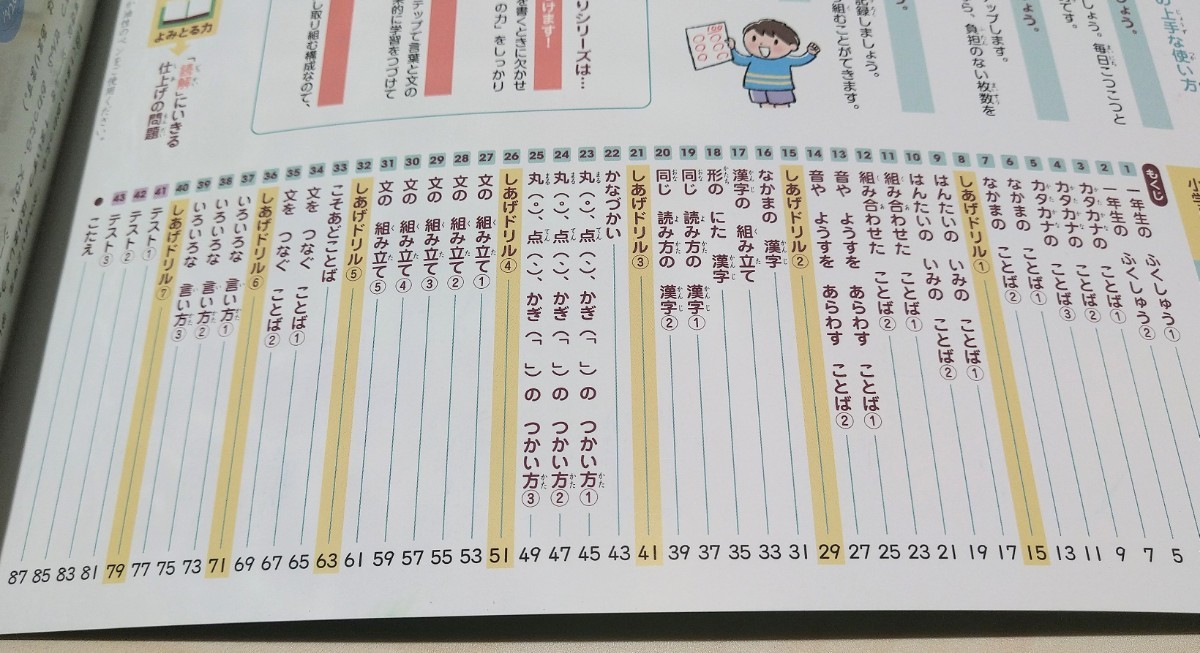 の上手な使い方
しょう。
しょう。毎日こつこつと
です。
ップします。
ら、負担のない枚数を
う。
記録しましょう。
組むことができます。
りシリーズは…
けます!
を書くときに欠かせ
の力」をしっかり
テップで言葉と文の
果的に学習をつづけて
し取り組む構成なので、
よみとる力
「読解」にいきる
仕上げの問題
もくじ
1 一年生の ふくしゅう①
2 一年生の ふくしゅう②
3 カタカナの ことば① 5
4 カタカナの ことば② 7
5 カタカナの ことば③ 9
6 なかまの ことば① 11
7 なかまの ことば② 13
8 しあげドリル① 15
9 はんたいの いみの ことば① 17
10 はんたいの いみの ことば② 19
11 組み合わせた ことば① 21
12 組み合わせた ことば② 23
13 音や ようすを あらわす ことば① 25
14 音や ようすを あらわす ことば② 27
15 しあげドリル② 29
16 なかまの 漢字 31
17 漢字の 組み立て 33
18 形の にた 漢字 35
19 同じ 読み方の 漢字① 37
20 同じ 読み方の 漢字② 39
21 しあげドリル③ 41
22 かなづかい 43
23 丸(。)、点(、)、かぎ(「 」)の つかい方① 45
24 丸(。)、点(、)、かぎ(「 」)の つかい方② 47
25 丸(。)、点(、)、かぎ(「 」)の つかい方③ 49
26 しあげドリル④ 51
27 文の 組み立て① 53
28 文の 組み立て② 55
29 文の 組み立て③ 57
30 文の 組み立て④ 59
31 文の 組み立て⑤ 61
32 しあげドリル⑤ 63
33 こそあどことば 65
34 文を つなぐ ことば① 67
35 文を つなぐ ことば② 69
36 しあげドリル⑥ 71
37 いろいろな 言い方① 73
38 いろいろな 言い方② 75
39 いろいろな 言い方③ 77
40 しあげドリル⑦ 79
41 テスト① 81
42 テスト② 83
43 テスト③ 85
● こたえ 87